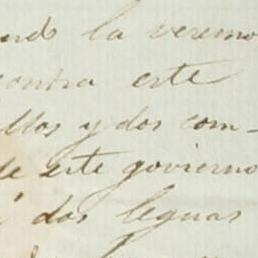 la veremo
contra este
llos y dos com-
de este govierno
á dos leguas